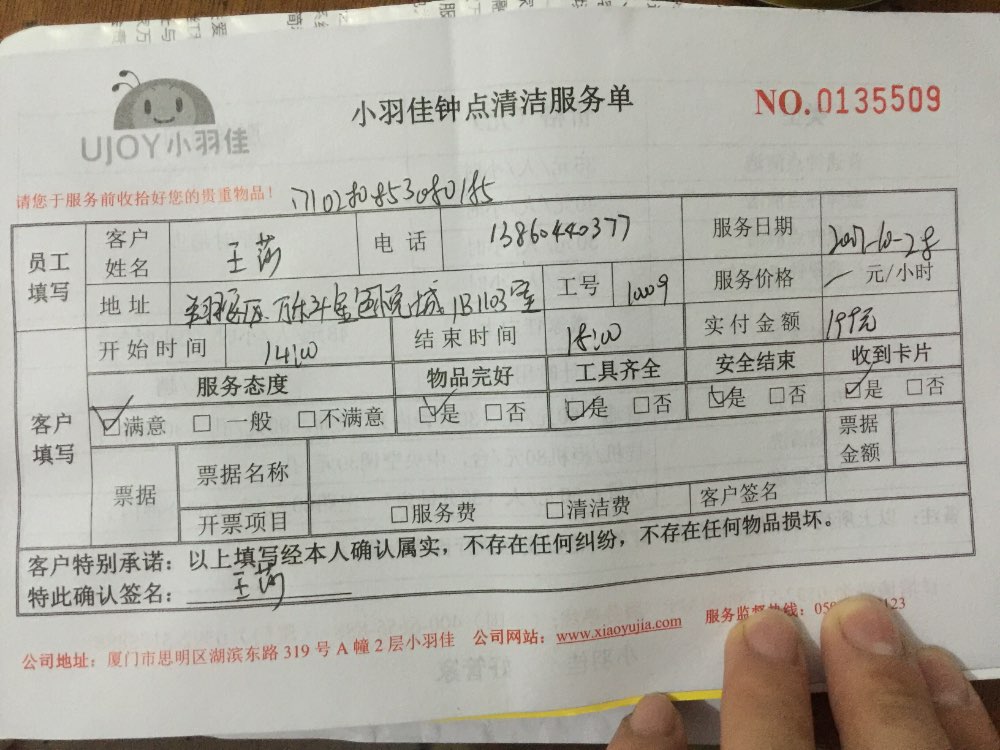 UJOY小羽佳
小羽佳钟点清洁服务单
NO.0135509
请您于服务前收拾好您的贵重物品!
员工填写
客户姓名 王莎 电话 13860440377 服务日期
地址 1B1103室 工号 10009 服务价格 元/小时
开始时间 14:00 结束时间 18:00 实付金额 199元
客户填写
服务态度 物品完好 工具齐全 安全结束 收到卡片
☑满意 □一般 □不满意 ☑是 □否 ☑是 □否 ☑是 □否 ☑是 □否
票据 票据名称 票据金额
开票项目 □服务费 □清洁费 客户签名
客户特别承诺:以上填写经本人确认属实,不存在任何纠纷,不存在任何物品损坏。
特此确认签名: 王莎
公司地址:厦门市思明区湖滨东路 319 号 A 幢 2 层小羽佳 公司网站:www.xiaoyujia.com 服务监督热线: